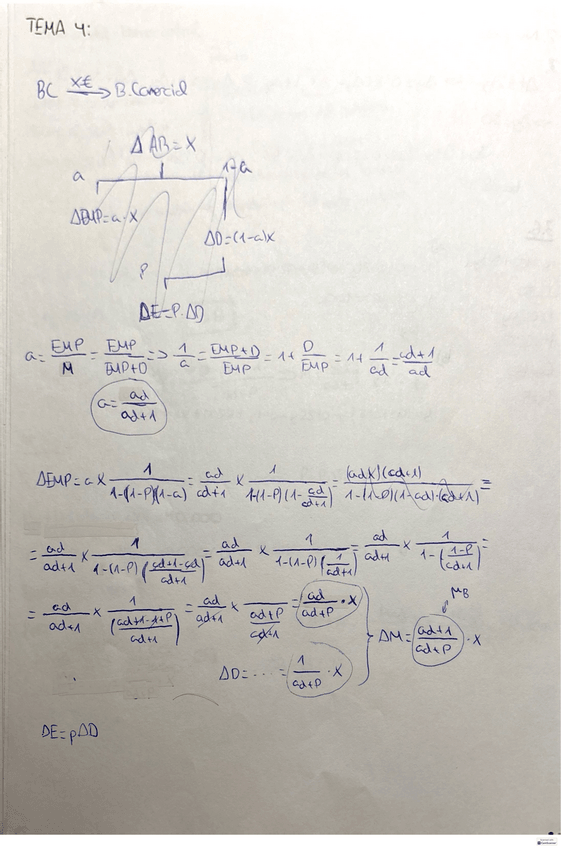 TEMA 4:
BC X€ → B. Comercial
Δ AB = X
a 1-a
ΔEMP = a · X
ΔD = (1-a)X
P
ΔE = P · ΔD
a = EMP/M = EMP/(EMP+D) => 1/a = (EMP+D)/EMP = 1 + D/EMP = 1 + 1/ad = (ad+1)/ad
a = ad/(ad+1)
ΔEMP = a X 1/(1-(1-P)(1-a)) = ad/(ad+1) X 1/(1-(1-P)(1-ad/(ad+1))) = (adX)(ad+1)/(1-(1-P)(1-ad)·(ad+1)) =
= ad/(ad+1) X 1/(1-(1-P)((ad+1-ad)/(ad+1))) = ad/(ad+1) X 1/(1-(1-P)(1/(ad+1))) = ad/(ad+1) X 1/(1-((1-P)/(ad+1))) =
μB
= ad/(ad+1) X 1/((ad+1-1+P)/(ad+1)) = ad/(ad+1) X 1/((ad+P)/(ad+1)) = ad/(ad+P) · X } ΔM = (ad+1)/(ad+P) · X
ΔD = ..... = 1/(ad+P) · X
ΔE = pΔD